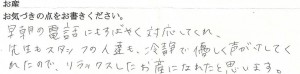 お産
お気づきの点をお書きください。
早朝の電話にもすばやく対応してくれ、
先生もスタッフの人達も、冷静で優しく声がけしてく
れたので、リラックスしたお産になれたと思います。